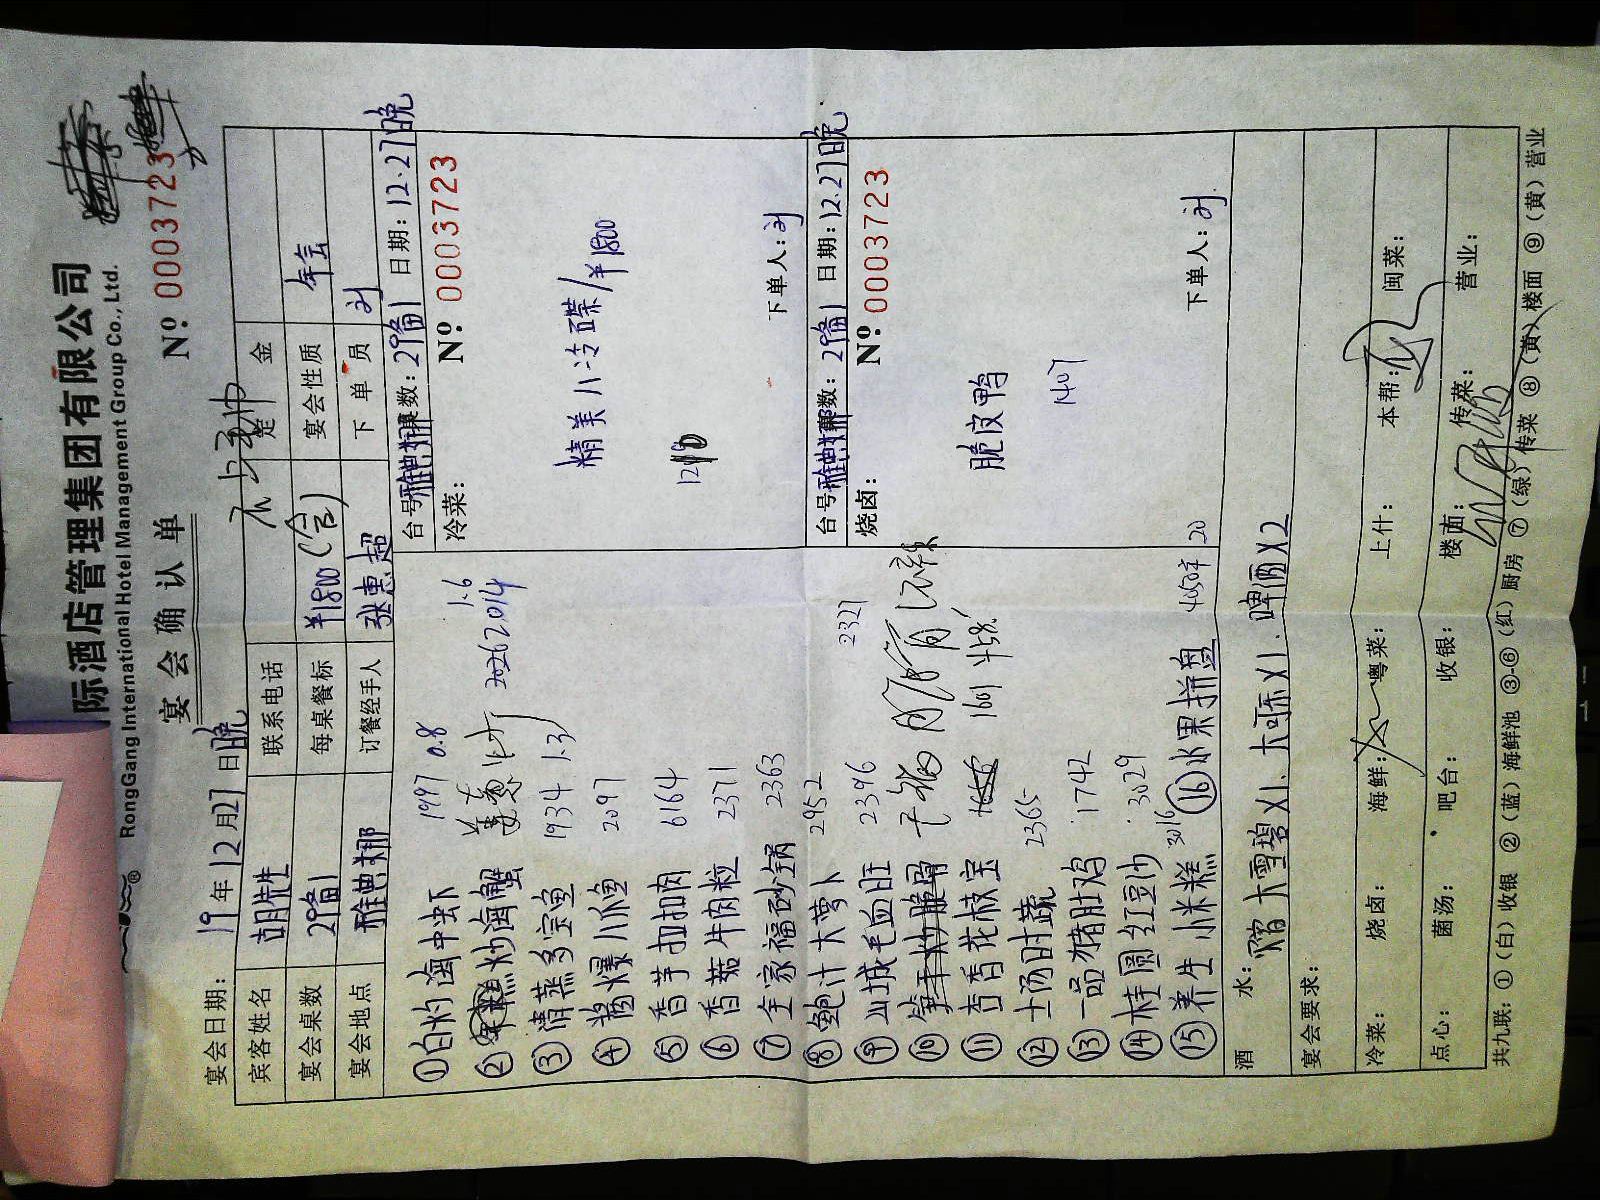 际酒店管理集团有限公司
RongGang International Hotel Management Group Co., Ltd.
宴会确认单
No. 0003723
宴会日期: 19年12月27日晚
宾客姓名 胡先生 联系电话 定金
宴会桌数 29备1 每桌餐标 ¥1800(含) 宴会性质 年会
宴会地点 雅典娜 订餐经手人 张惠超 下单员 刘
①白灼海中虾 1997 0.8
②炒海蟹 姜葱炒 2014 1.6
③清蒸多宝鱼 1934 1.3
④酱爆小米鱼 2097
⑤香芋扣肉 6164
⑥香菇牛肉粒 2371
⑦全家福砂锅 2363
⑧鲍汁大萝卜 2952
⑨山城毛血旺 2396 2321
⑩
⑪杏香花枝宝 1601
⑫上汤时蔬 2365
⑬一品猪肚鸡 1742
⑭桂圆红豆沙 3029
⑮养生小米糕 3016 ⑯水果拼盘 20
台号: 雅典娜 桌数: 29备1 日期: 12.27晚
冷菜: No. 0003723
精美八冷碟/¥1800
下单人: 刘
台号: 雅典娜 桌数: 29备1 日期: 12.27晚
烧卤: No. 0003723
脆皮鸭
1407
下单人: 刘
酒水: 赠大雪碧X1、大可乐X1、啤酒X2
宴会要求:
冷菜: 烧卤: 海鲜: 粤菜: 上什: 本帮: 闽菜:
点心: 菌汤: 吧台: 收银: 楼面: 传菜: 营业:
共九联: ①(白)收银 ②(蓝)海鲜池 ③-⑥(红)厨房 ⑦(绿)传菜 ⑧(黄)楼面 ⑨(黄)营业